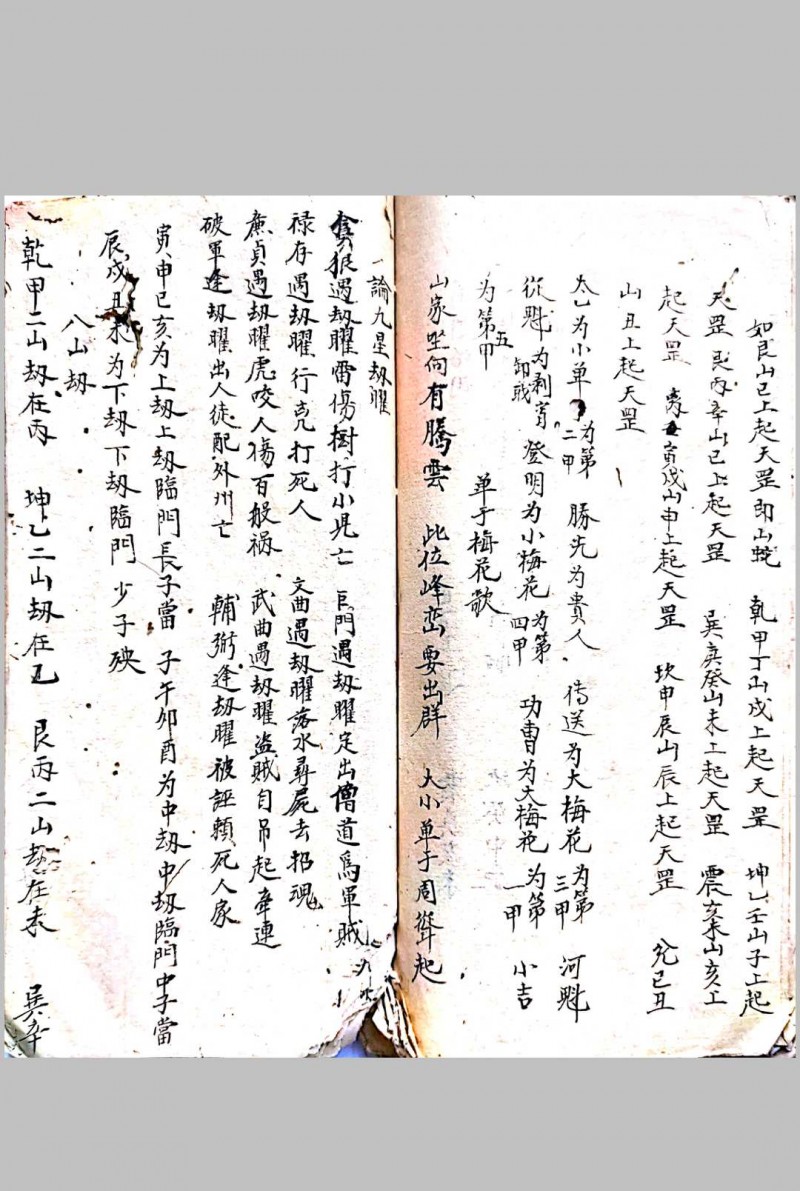 如艮山巳上起天罡即山蛇 乾甲丁山戌上起天罡 坤乙壬山子上起
天罡 艮丙辛山巳上起天罡 巽庚癸山未上起天罡 震亥未山亥上
起天罡 离寅戌山申上起天罡 坎申辰山辰上起天罡 兌巳丑
山丑上起天罡
太乙为小单于为第二甲 勝先为貴人 傳送为大梅花为第三甲 河魁
從魁为剥 卸 登明为小梅花为第四甲 功曹为大梅花为第一甲 小吉
为第五甲 单于梅花歌
山家坐向有騰雲 此位峰峦要出群 大小单于周聳起
一論九星刼曜
貪狼遇刼曜雷傷樹打小児亡 巨門遇刼曜定出僧道為軍賊
禄存遇刼曜行克打死人 文曲遇刼曜落水尋屍去招魂
廉貞遇刼曜虎咬人傷百般禍 武曲遇刼曜盗賊自吊起牽連
破軍逢刼曜出人徒配外州亡 輔弼逢刼曜被誣賴死人家
寅申巳亥为上刼上刼臨門長子當 子午卯酉为中刼中刼臨門中子當
辰戌丑未为下刼下刼臨門少子殃
八山刼
乾甲二山刼在丙 坤乙二山刼在乙 艮丙二山刼在未 巽辛